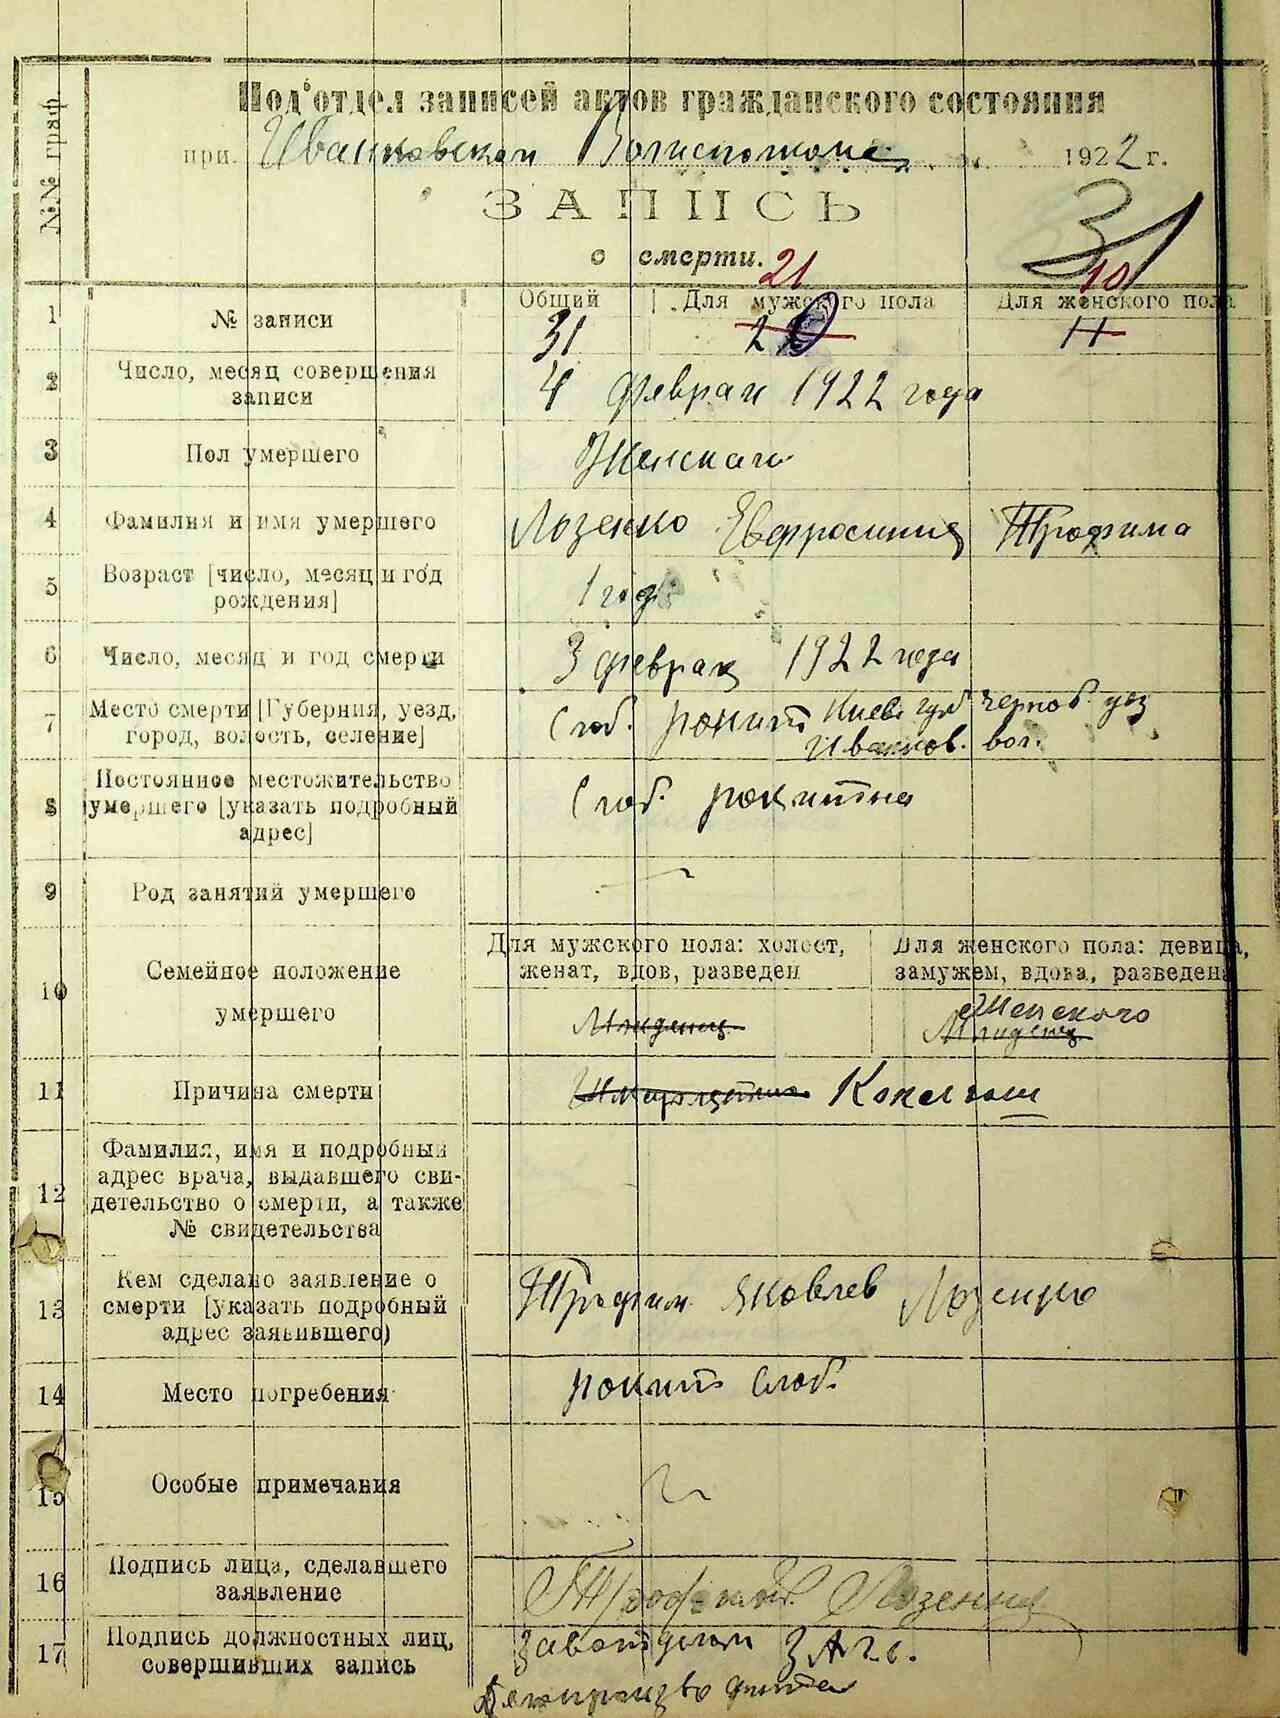 №№ граф.
Под'отдел записей актов гражданского состояния
при Иванковском Волисполкоме 1922 г.
ЗАПИСЬ
о смерти.
31
21
10
1 № записи Общий Для мужского пола Для женского пола
31 11
2 Число, месяц совершения
записи
4 феврал 1922 года
3 Пол умершего Женскаго
4 Фамилия и имя умершего Лозенко Евфросиния Трофима
5 Возраст [число, месяц и год
рождения]
1 год
6 Число, месяц и год смерти 3 феврал 1922 года
7 Место смерти [Губерния, уезд,
город, волость, селение]
Слоб. рокит Киев. губ. Черноб. уез
Иванков. вол.
8 Постоянное местожительство
умершего [указать подробный
адрес]
Слоб. рокитна
9 Род занятий умершего
10 Семейное положение
умершего
Для мужского пола: холост,
женат, вдов, разведен
Для женского пола: девица,
замужем, вдова, разведена
Младенец
Женского
Младенец
11 Причина смерти Коклюш
12 Фамилия, имя и подробный
адрес врача, выдавшего сви-
детельство о смерти, а также
№ свидетельства
13 Кем сделано заявление о
смерти [указать подробный
адрес заявившего)
Трофим Яковлев Лозенко
14 Место погребения рокит слоб.
15 Особые примечания
16 Подпись лица, сделавшего
заявление
Трофим Лозенко
17 Подпись должностных лиц,
совершивших запись
Завотделом ЗАГС.